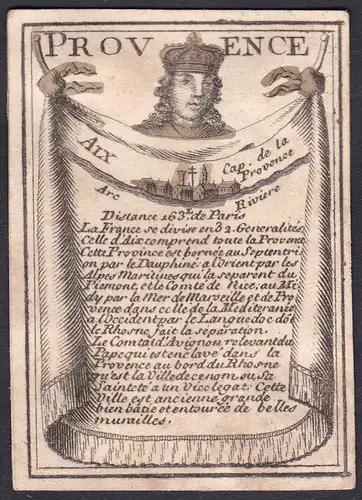 PROVENCE
AIX
Cap. de la
Provence
Arc
Riviere
Distance 163.^l de Paris
La France se divise en 32. Generalités,
Celle d'Aix comprend toute la Provence
Cette Province est bornée au Septentri
on par le Dauphiné a l'Orient par les
Alpes Maritimes qui la separent du
Piemont, et le Comté de Nice, au Mi
dy par la Mer de Marseille et de Pro
vence dans celle de la Mediteranée
a l'Occident par le Languedoc d'ou
le Rhosne fait la separation.
Le Comtat d'Avignon relevant du
Pape qui est enclavé dans la
Provence au bord du Rhosne
qu'est la Ville de ce nom, ou Sa
Sainteté a un Vice legat. Cette
Ville est ancienne grande
bien bâtie et entourée de belles
murailles.